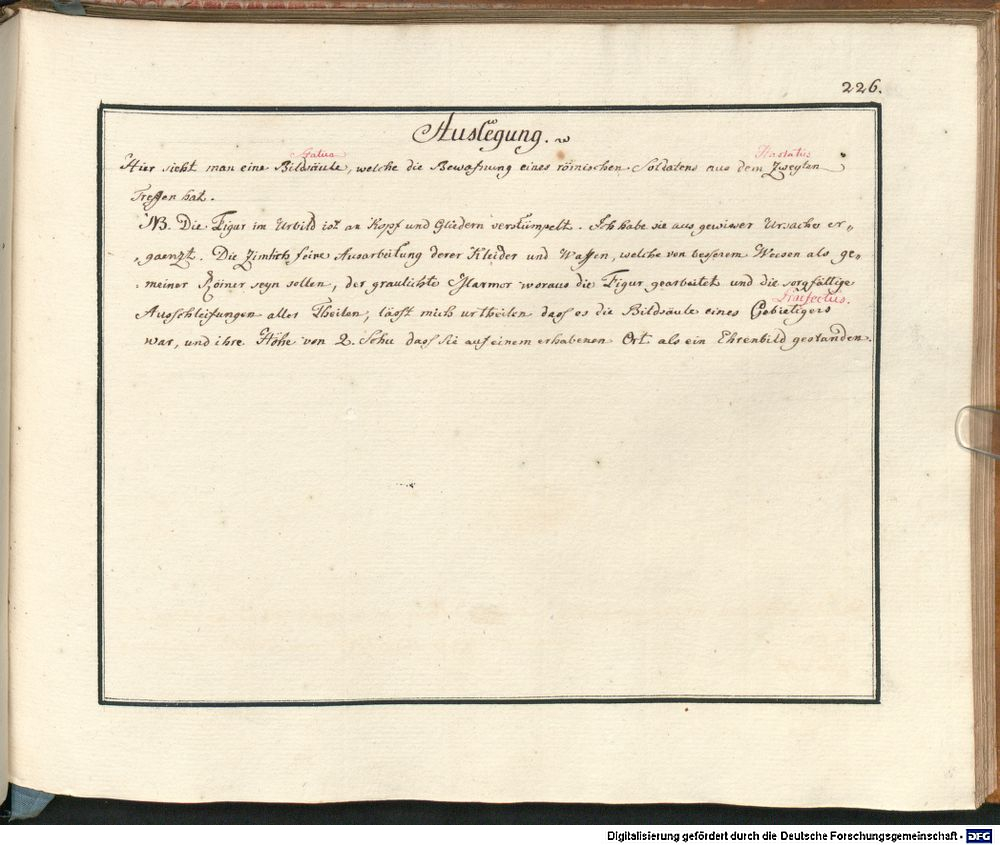 226.
Auslegung.
Statua Hastatus
Hier sieht man eine Bildsäule, welche die Bewafnung eines römischen Soldatens aus dem Zweyten
Treffen hat.
NB. Die Figur im Urbild ist an Kopf und Gliedern verstümpelt. Ich habe sie aus gewisser Ursache er„
„gaenzt. Die Zimlich feine Ausarbeitung derer Kleider und Waffen, welche von besserem Weesen als ge„
meiner Römer seyn sollen, der graulichte Marmor woraus die Figur gearbeitet und die sorgfältige
Praefectus.
Ausschleifungen aller Theilen, lässt mich urtheilen dass es die Bildsäule eines Gebietigers
war, und ihre Höhe von 2. Schu dass Sie auf einem erhabenen Ort als ein Ehrenbild gestanden.
Digitalisierung gefördert durch die Deutsche Forschungsgemeinschaft - DFG